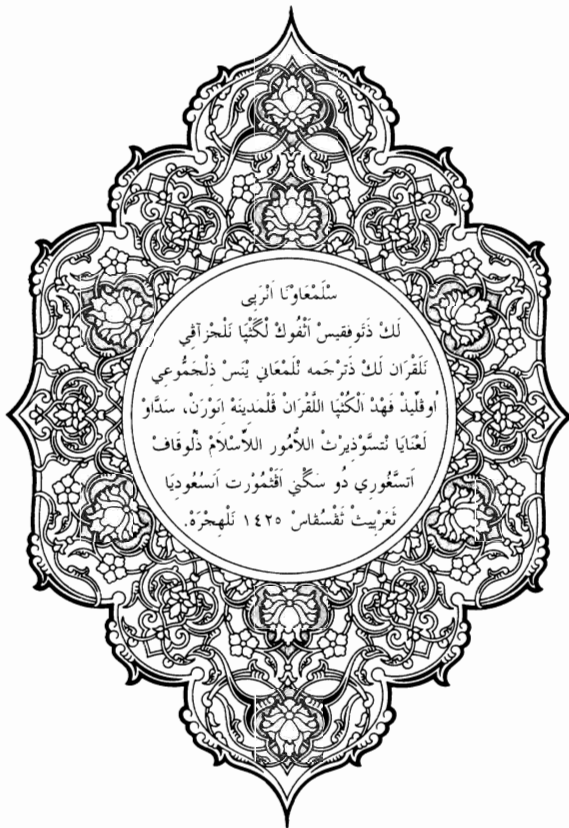 سْلَمْعَاوْنَا اَنْرَبِّي
لَكْ ذَتَوفقيسْ اَثْفُوكْ لْگَثْيَا نَلْجُزآڤي
نَلقْرَان لَكْ ذَتَرْجَمه نْلَمْعَاني يْنَسْ ذِلْجَمُّوعي
اُوڤْلِّيذْ فَهْدْ اَلْكُتْيَا اللَّقْرَان ڤَلْمَدينَهْ اِنَوْرَنْ، سَدَّاوْ
لَعْنَايَا نْتسَّوْذيرْثْ اللأُمُور اللاَّسْلاَمْ ذَلُوقَافْ
اَتسَّغُورِي ذُو سَگْني اَڤَثْمُوْرت اَتسُعُوديَا
ثَعْرِبيثْ ثَڤْسُڤَّاسْ ١٤٢٥ نَلْهِجْرَهْ.